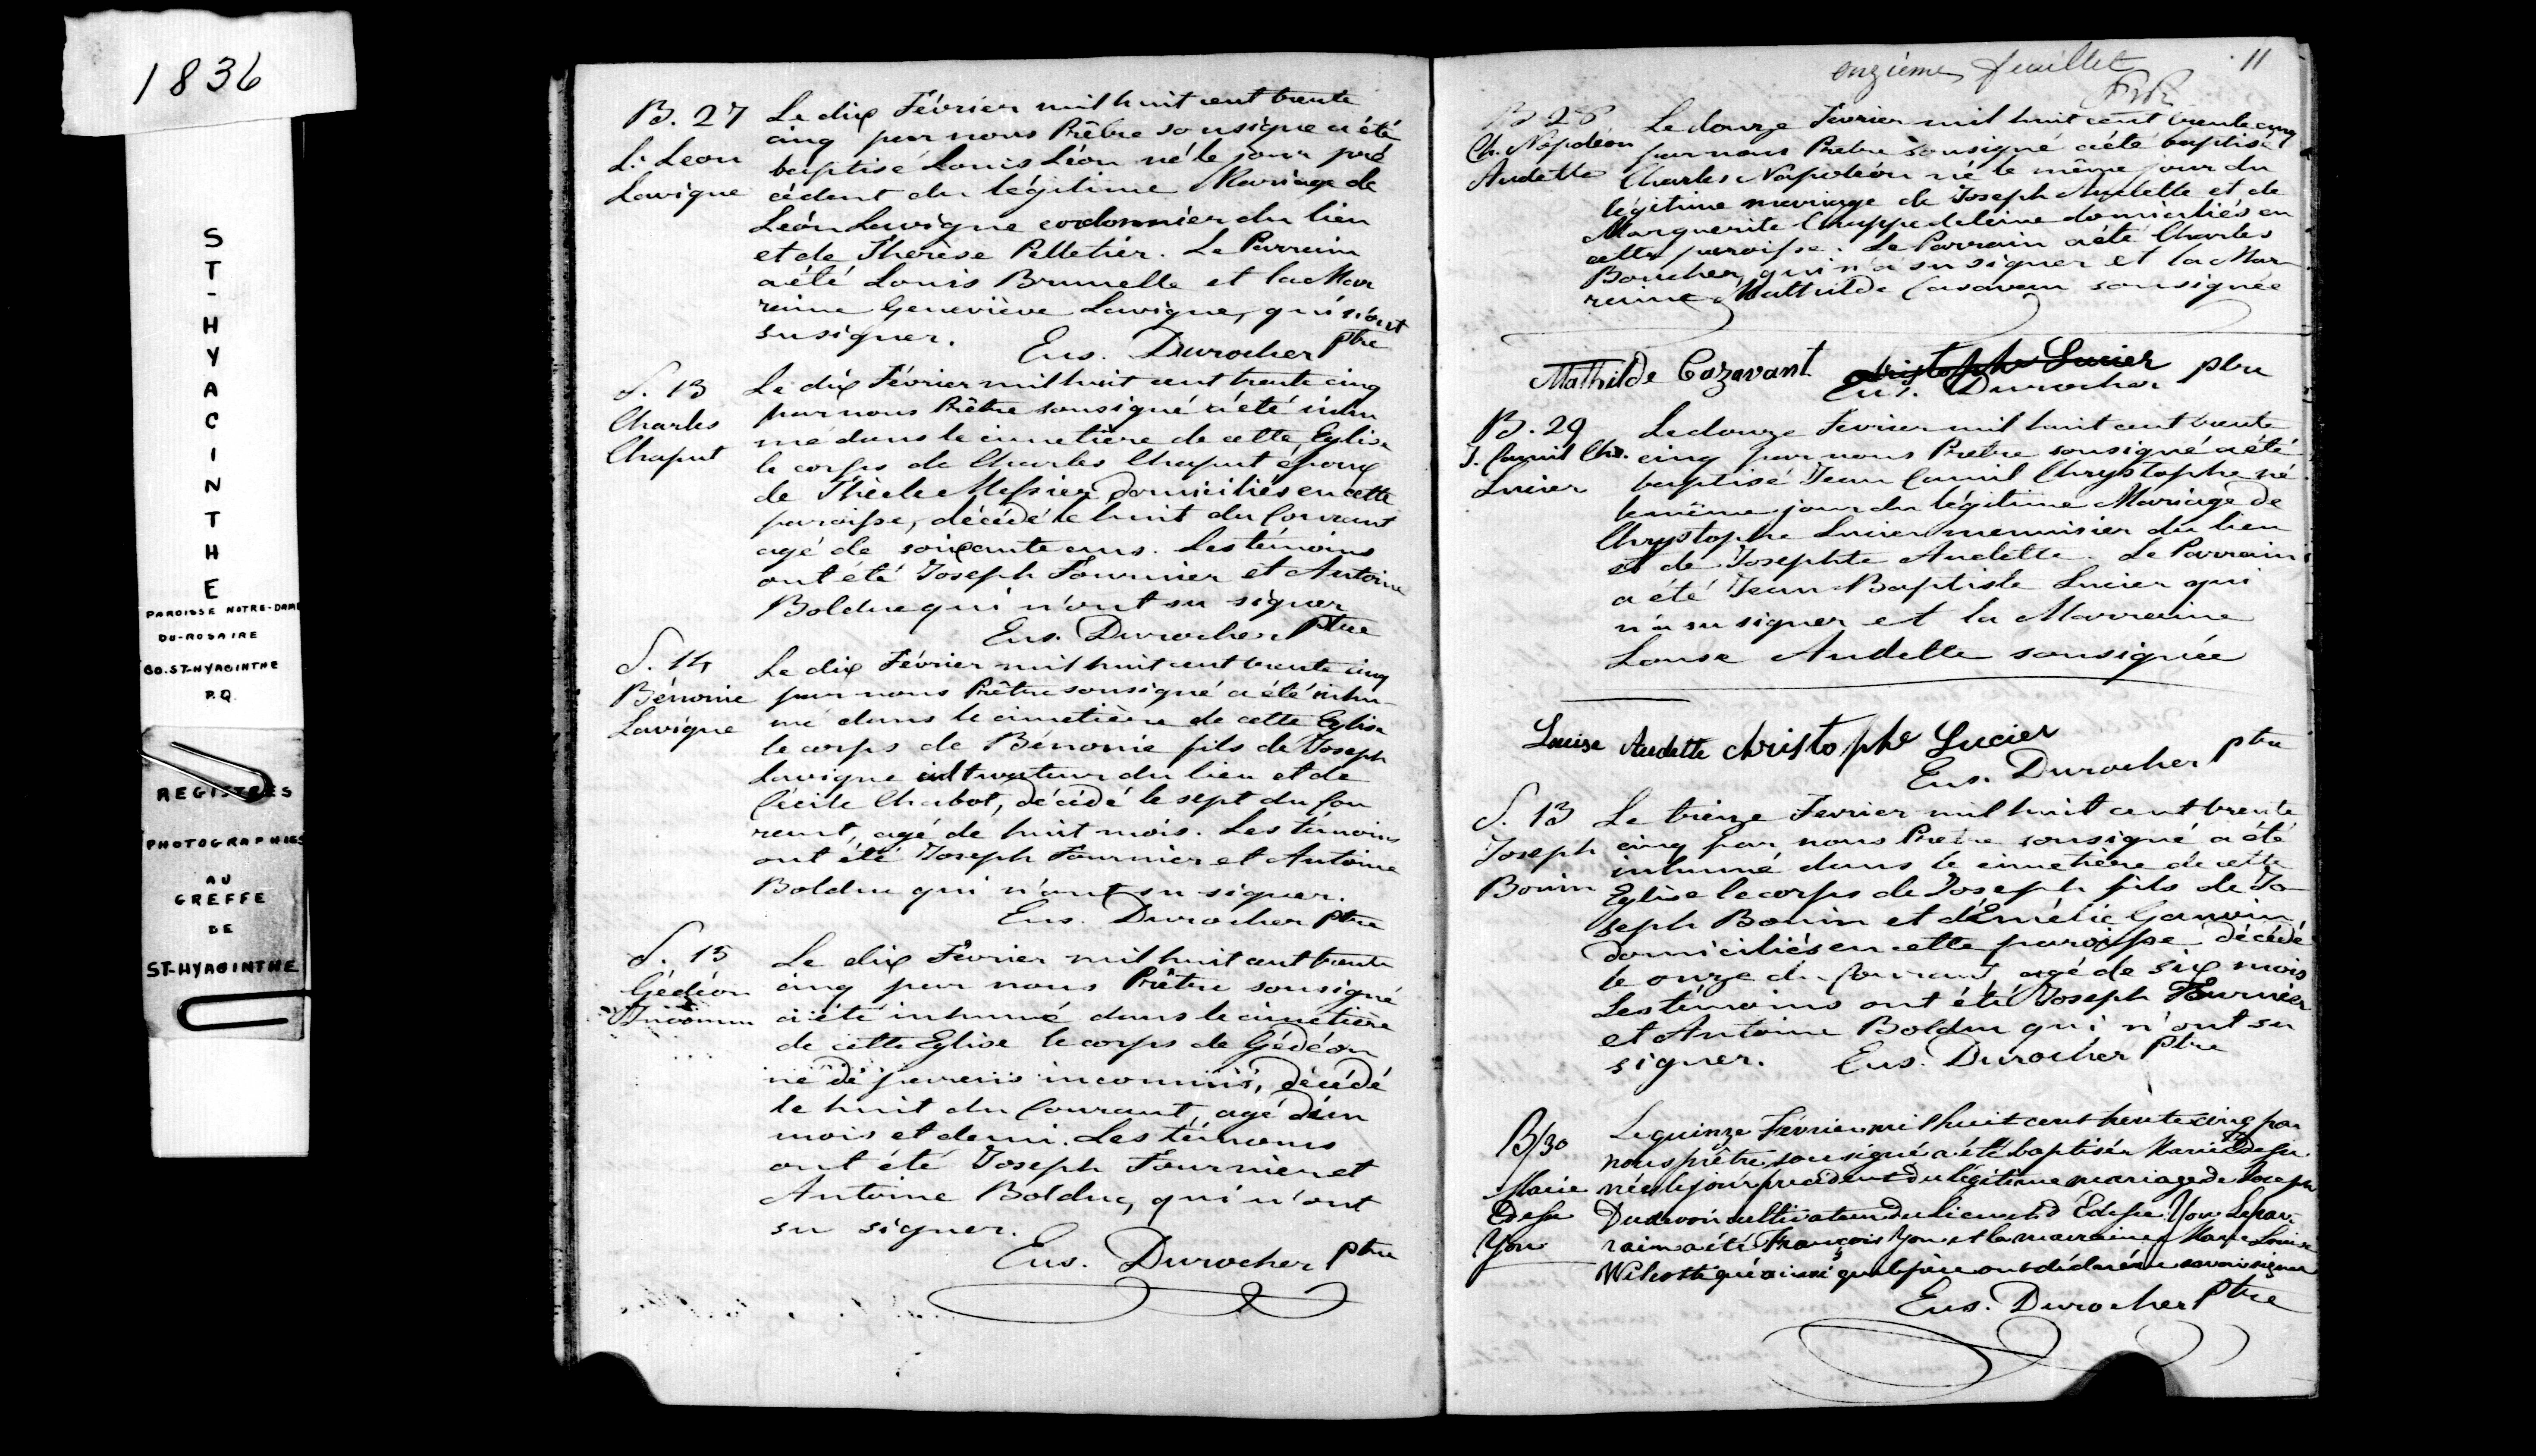 1836
ST-HYACINTHE
PAROISSE NOTRE-DAME
DU-ROSAIRE
CO. ST-HYACINTHE
P.Q.
REGISTRES
PHOTOGRAPHIES
AU
GREFFE
DE
ST-HYACINTHE
B. 27
L. Leon
Lavigne
Le dix Février mil huit cent trente
cinq par nous Prêtre sousigné a été
baptisé Louis Léon né le jour pré
cédent du légitime Mariage de
Léon Lavigne cordonnier du lieu
et de Therèse Pelletier. Le Parrain
a été Louis Brunelle et la Mar
raine Geneviève Lavigne, qui n'ont
su signer.
Eus. Durocher Ptre
S. 13
Charles
Chaput
Le dix Février mil huit cent trente cinq
par nous Prêtre sousigné a été inhu
mé dans le cimetière de cette Eglise
le corps de Charles Chaput époux
de Thècle Messier domiciliés en cette
paroisse, décédé le huit du Courant
agé de soixante ans. Les témoins
ont été Joseph Fournier et Antoine
Bolduc qui n'ont su signer
Eus. Durocher Ptre
S. 14
Bénonie
Lavigne
Le dix Février mil huit cent trente cinq
par nous Prêtre sousigné a été inhu-
mé dans le cimetière de cette Eglise
le corps de Bénonie fils de Joseph
Lavigne cultivateur du lieu et de
Cécile Chabot, décédé le sept du Cou
rant, agé de huit mois. Les témoins
ont été Joseph Fournier et Antoine
Bolduc qui n'ont su signer.
Eus. Durocher Ptre
S. 15
Gédéon
Inconnu
Le dix Février mil huit cent trente
cinq par nous Prêtre sousigné
a été inhumé dans le cimetière
de cette Eglise le corps de Gédéon
né de parens inconnus, décédé
le huit du Courant, agé d'un
mois et demi. Les témoins
ont été Joseph Fournier et
Antoine Bolduc, qui n'ont
su signer.
Eus. Durocher Ptre
onzième feuillet
11
B 28
Ch. Napoléon
Audette
Le douze Fevrier mil huit cent trente cinq
par nous Prêtre sousigné a été baptisé
Charles Napoléon né le même jour du
légitime mariage de Joseph Audette et de
Marguerite Chappedeleine domiciliés en
cette paroisse. Le Parrain a été Charles
Boucher, qui n'a su signer et la Mar
raine Mathilde Casavan sousignée
Mathilde Cazavant Christophe Lucier
Eus. Durocher ptre
B. 29
J. Camil Chr.
Lucier
Le douze Fevrier mil huit cent trente
cinq par nous Prêtre sousigné a été
baptisé Jean Camil Chrystophe né
le même jour du légitime Mariage de
Chrystophe Lucier menuisier du lieu
et de Josephte Audette. Le Parrain
a été Jean Baptiste Lucier qui
n'a su signer et la Marraine
Louse Audette sousignée
Louise Audette christophe Lucier
Eus. Durocher ptre
S. 13
Joseph
Bonin
Le treize Fevrier mil huit cent trente
cinq par nous Prêtre sousigné a été
inhumé dans le cimetière de cette
Eglise le corps de Joseph fils de Jo
seph Bonin et d'Emélie
domiciliés en cette paroisse décédé
le onze du Courant, agé de six mois
Les témoins ont été Joseph Fournier
et Antoine Bolduc qui n'ont su
signer. Eus. Durocher Ptre
B/30
Marie
Edesse
Yon
Le quinze Février mil huit cent trente cinq par
nous prêtre sousigné a été baptisée Marie Edesse
née le jour précédent du légitime mariage de Joseph
cultivateur du lieu et d'Edesse Yon. Le par-
rain a été François Yon et la marraine Marie Louise
qui ainsi que le père ont déclaré ne savoir signer
Eus. Durocher Ptre